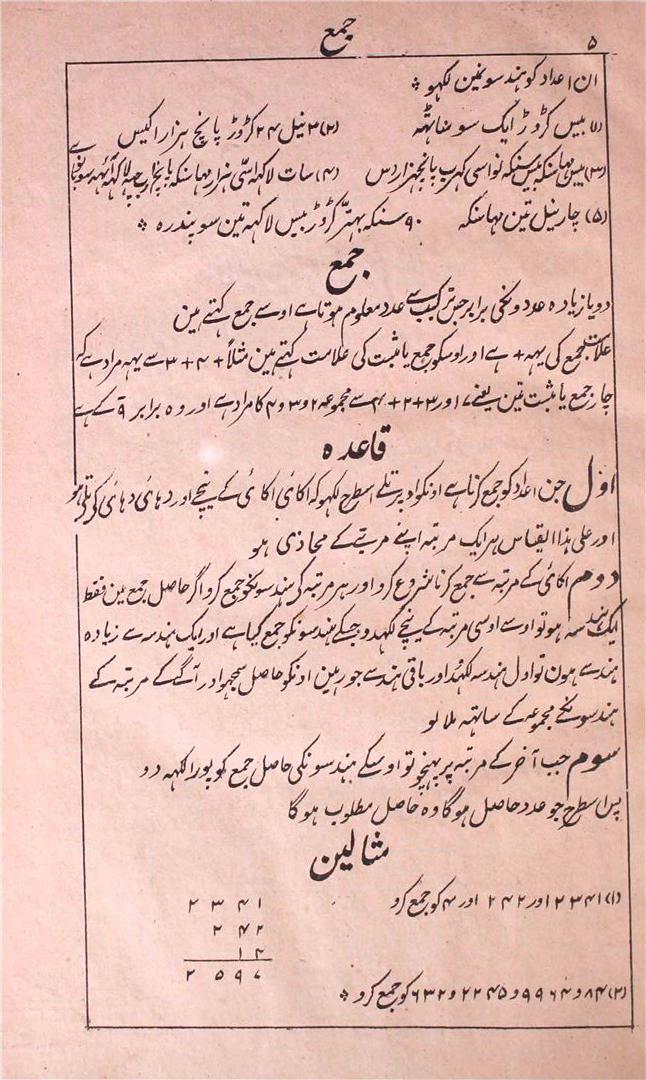 ۵
جمع
ان اعداد کو ہندسونمین لکھو *
(۱) بیس کڑوڑ ایک سو ساٹھہ (۲) ۳ نیل ۲۴ کڑوڑ پانچ ہزار اکیس
(۳) بیس مہاسنکہ بیس سنکہ نواسی کہرب پانچہزار دس (۴) سات لاکہہ اسّی ہزار مہاسنکہ
(۵) چار نیل تین مہاسنکہ ۹۰ سنکہ بہتّر کڑوڑ بیس لاکہہ تین سو پندرہ *
جمع
دو یا زیادہ عددونکی برابر جس ترکیب سے عدد معلوم ہوتا ہے اوسے جمع کہتے ہین
علامت جمع کی یہہ + ہے اور اوسکو جمع یا مثبت کی علامت کہتے ہین مثلاً ۴ + ۳ سے یہہ مراد ہے کہ
چار جمع یا مثبت تین یعنے ۷ اور ۳ + ۲ + ۴ سے مجموعہ ۲ و ۳ و ۴ کا مراد ہے اور وہ برابر ۹ کے ہے
قاعدہ
اول جن اعداد کو جمع کرنا ہے اونکو اوپر تلے اسطرح لکھو کہ اکائی اکائی کے نیچے اور دہائی دہائی کی تلے ہو
اور علی ہذا القیاس ہر ایک مرتبہ اپنے مرتبے کے محاذی ہو
دوم اکائی کے مرتبہ سے جمع کرنا شروع کرو اور ہر مرتبہ کی ہندسونکو جمع کرو اگر حاصل جمع مین فقط
ایک ہندسہ ہو تو اوسے اوسی مرتبہ کے نیچے لکھدو جسکے ہندسونکو جمع کیا ہے اور ایک ہندسہ سے زیادہ
ہندسے ہون تو اول ہندسہ لکھدو اور باقی ہندسے جو رہین اونکو حاصل سمجھو اور آگے کے مرتبہ کے
ہندسونکے مجموعہ کے ساتہہ ملا لو
سوم جب آخر کے مرتبہ پر پہنچو تو اوسکے ہندسونکی حاصل جمع کو پورا لکہہ دو
پس اسطرح جو عدد حاصل ہوگا وہ حاصل مطلوب ہوگا
مثالین
(۱) ۲۳۴۱ اور ۲۴۲ اور ۱۴ کو جمع کرو
۲ ۳ ۴ ۱
۲ ۴ ۲
۱ ۴
۲ ۵ ۹ ۷
(۲) ۸۴ و ۹۹۶۴ و ۲۲۴۵ و ۶۳۲ کو جمع کرو *